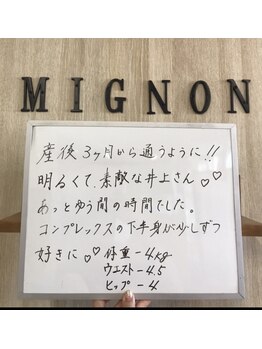 MIGNON
産後3ヶ月から通うように!!
明るくて、素敵な井上さん♡♡
あっとゆう間の時間でした。
コンプレックスの下半身が少しずつ
好きに♡ 体重-4kg
ウエスト-4.5
ヒップ-4